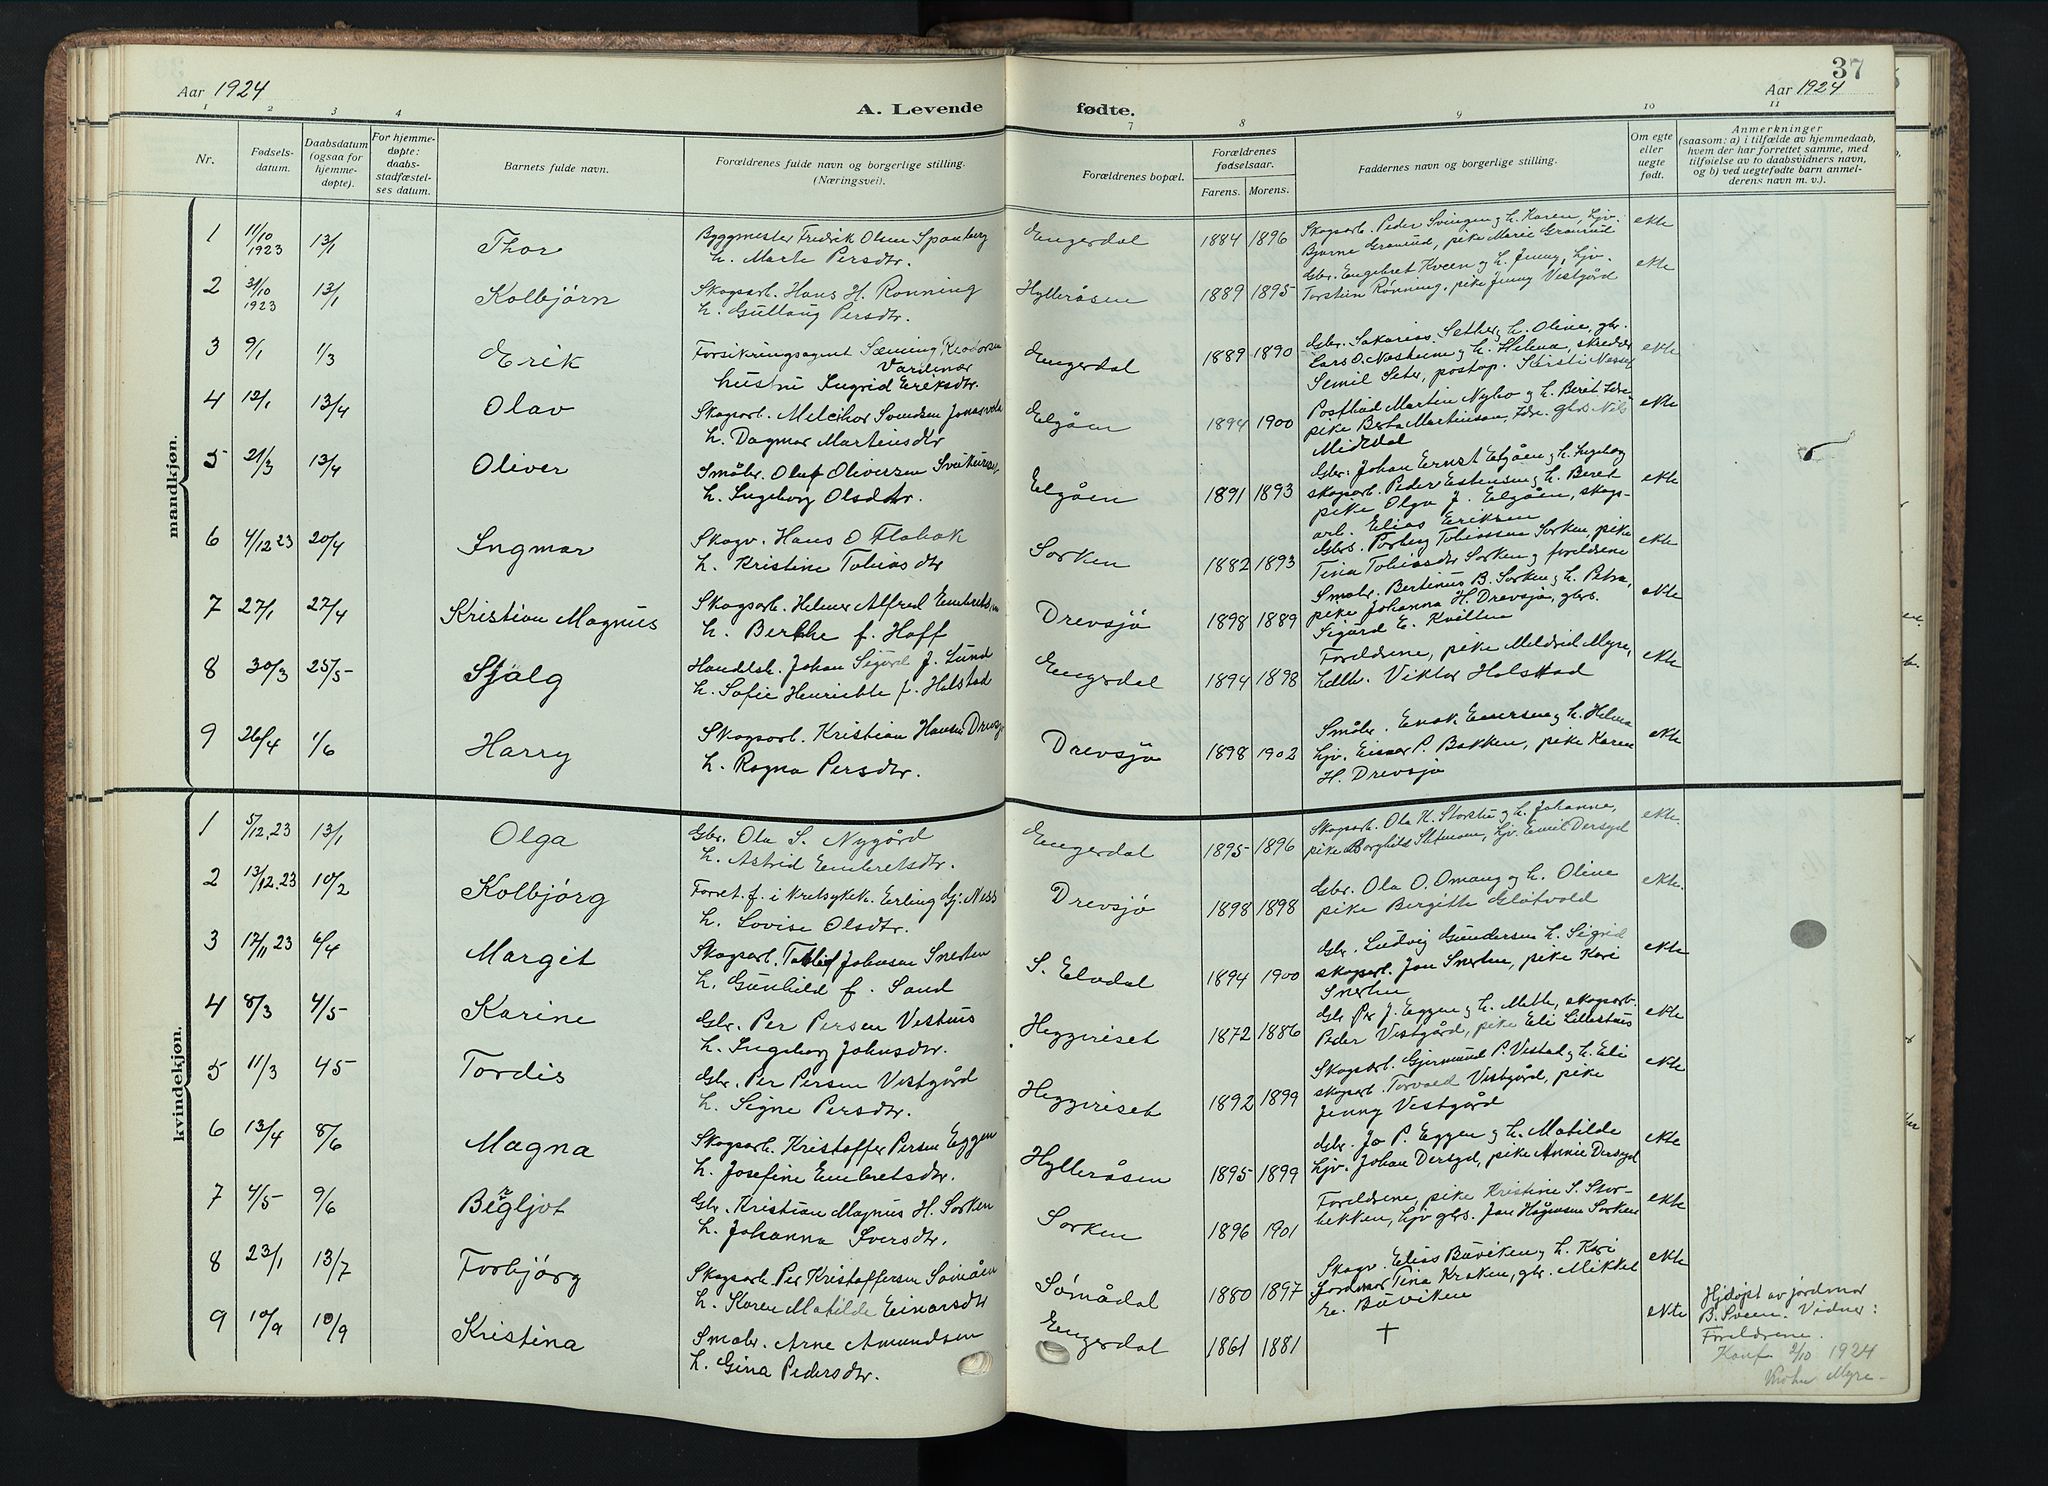 37
Aar 1924
A. Levende fødte.
Aar 1924
1 2 3 4 7 8 9 10 11
Nr.
Fødsels-
datum.
Daabsdatum
(ogsaa for
hjemme-
døpte).
For hjemme-
døpte:
daabs-
stadfæstel-
ses datum.
Barnets fulde navn.
Forældrenes fulde navn og borgerlige stilling.
(Næringsvei).
Forældrenes bopæl.
Forældrenes
fødselsaar.
Farens. Morens.
Faddernes navn og borgerlige stilling.
Om egte
eller
uegte
født.
Anmerkninger
(saasom: a) i tilfælde av hjemmedaab,
hvem der har forrettet samme, med
tilføielse av to daabsvidners navn,
og b) ved uegtefødte barn anmel-
derens navn m. v.).
mandkjøn.
1 11/10 1923 13/1 Thor
Byggmester Fredrik Olsen Spanberg
h. Marte Persdtr.
Engerdal 1884 1896
Skogsarb. Peder Svingen og h. Karen, hjv.
Bjarne Granrud, pike Marie Granrud
ekte
2 31/10 1923 13/1 Kolbjörn
Skogsarb. Hans H. Rønning
h. Gullaug Persdtr.
Hylleråsen 1889 1895
Gbr. Engebret Kveen og h. Jenny, hjv.
Torstein Rønning, pike Jenny Vestgård
ekte
3 9/1 1/3 Erik
Forsikringsagent Sæming
Værdenær
hustru Ingrid Eriksdtr.
Engerdal 1889 1890
Gbr. Sakarias Sether, h. Olive, gbr.
Lars O. Næsheim og h. Helena, skredder
Semil Seter, postop. Kirsti
ekte
4 12/1 13/4 Olav
Skogsarb. Melchior Svendsen Jonasvola
h. Dagmar Martinsdtr
Elgåen 1894 1900
Postbud Martin Nybo og h. Berit Idre
pike Berta Martinsen, Idre. gbrs. Nils
Mideldal
ekte
5 21/3 13/4 Oliver
Småbr. Oluf Oliversen
h. Ingeborg Olsdtr.
Elgåen 1891 1893
Gbr. Johan Ernst Elgåen og h. Ingeborg
skogsarb. Peder Estensen og h. Beret
pike Olga J. Elgåen, skogs-
arb. Elias Eriksen
ekte
6 4/12 23 20/4 Ingmar
Skogv. Hans O Flabak
h. Kristine Tobiasdtr
Sorken 1882 1893
Gbrs. Torberg Tobiassen Sorken, pike
Tina Tobiasdtr Sorken og foreldrene
ekte
7 27/1 27/4 Kristian Magnus
Skogsarb. Helmer Alfred Embretsen
h. Berthe f. Hoff
Drevsjö 1898 1889
Småbr. Bertinus B. Sorken og h. Petra,
pike Johanna H. Drevsjø, gbrs.
Sigurd E. Kvilten
ekte
8 30/3 25/5 Sjålg
Handelsb. Johan Sigurd J. Lund
h. Sofie Henriette f. Halstad
Engerdal 1894 1898
Foreldrene, pike Meldrid Myre,
hdlb. Viktor Halstad
ekte
9 26/4 1/6 Harry
Skogsarb. Kristian Hansen Drevsjø
h. Ragna Persdtr.
Drevsjö 1898 1902
Småbr. Enok Einersen og h. Helena
hjv. Einar P. Bakken, pike Karen
H. Drevsjø
ekte
kvindekjøn.
1 5/12.23 13/1 Olga
Gbr. Ola S. Nygård
h. Astrid Embretsdtr.
Engerdal 1895 1896
Skogsarb. Ola H. Storstu og h. Johanne,
pike Borghild Sætmoen, hjv. Emil Dersyd
ekte.
2 13/12.23 10/2 Kolbjörg
Forret. f. i kretssykek. Erling Gj. Ness
h. Lovise Olsdtr.
Drevsjö 1898 1898
Gbr. Ola O. Omang og h. Oline
pike Bergitte Gløtvold
ekte.
3 17/11 23 6/4 Margit
Skogsarb. Johansen Snerten
h. Gunhild f. Sand
S. Elvdal 1894 1900
Gbr. Ludvig Gundersen h. Sigrid
skogsarb. Jon Snerten, pike Kari
Snerten
ekte
4 8/3 4/5 Karine
Gbr. Per Persen Vesthus
h. Ingeborg Johnsdtr.
Heggeriset 1872 1886
Gbr Per J. Eggen og h. Mette, skogsarb.
Peder Vestgård, pike Eli Lillestuus
ekte
5 11/3 4 5 Tordis
Gbr. Per Persen Vestgård
h. Signe Persdtr.
Heggeriset 1892 1899
Skogsarb. Gjermund P. Vestad og h. Eli
skogsarb. Torvald Vestgård, pike
Jenny Vestgård
ekte
6 13/4 8/6 Magna
Skogsarb. Kristoffer Persen Eggen
h. Josefine Embretsdtr.
Hylleråsen 1895 1899
Gbr. Jo P. Eggen og h. Matilde
hjv. Johan Dersyd, pike Annie Dersyd
ekte
7 4/5 9/6 Bergljot
Gbr. Kristian Magnus H. Sorken
h. Johanna Iversdtr.
Sorken 1896 1901
Foreldrene, pike Kristine S. Stor-
bekken, hjv gbrs. Jon Hågensen Sorken
ekte
8 23/1 13/7 Torbjörg
Skogsarb. Per Kristoffersen Sömåen
h. Karen Matilde Einarsdtr
Sømådal 1880 1897
Skogv. Elias Buviken og h. Kari
Jordmor Tina Kroken, gbr. Mikkel
E. Buviken
ekte
9 10/9 10/9 Kristina
Småbr. Arne Amundsen
h. Gina Pedersdtr.
Engerdal 1861 1881
†
ekte
Hjdöpt av jordmor
B. Sveen. Vidner:
Foreldrene.
Konf. 2/10 1924
Myre